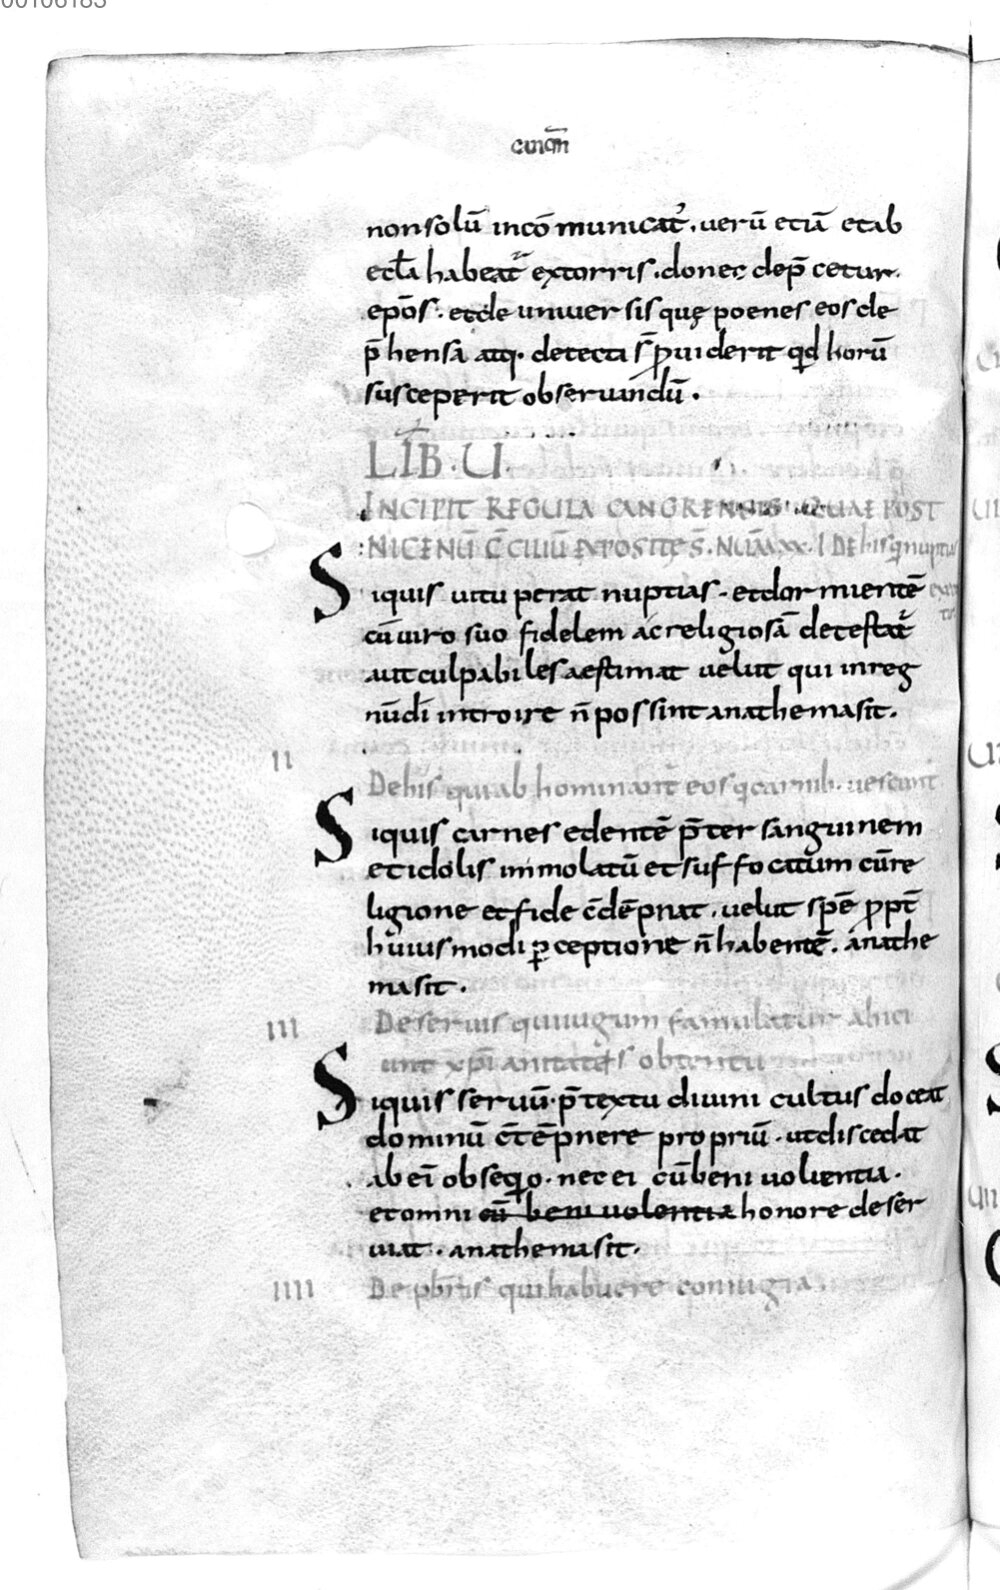 non solū incōmunicat᷑. uerū etiā et ab
eccła habeat᷑ extorris. donec dep̄cetur.
ep̄os. et de uniuersis quę poenes eos de
p̄hensa atq. detecti s̄ ꝓuiderit qd horū
susceperit obseruandū.
LIB̄. U
INCIPIT REGULA CANGRENSIS QUAE POST
NICENŪ C̄CILIŪ EXPOSITĘ S̄. NŪM XX. I DE his q nuptias
Siquis uituperat nuptias. et dormientē
cū uiro suo fidelem ac religiosā detestat᷑
aut culpabiles aestimat uelut qui in reg
nū dī introire n̄ possint anathema sit.
II
De his qui ab hominant᷑ eos q carnib. uescunt᷑
Siquis carnes edentē p̄ter sanguinem
et idolis immolatū et suffocatum cū re
ligione et fide c̄dēpnat. uelut spē ꝓpt̄
huiusmodi ꝑceptione n̄ habentē. anathe
ma sit.
III
De seruis qui iugum famulatur abici
unt xp̄ianitatis obtentu
Siquis seruū. p̄textu diuini cultus doceat
dominū c̄tēpnere propriū. ut discedat
ab eī obseqio. nec ei cū beniuolientia.
et omni cū beniuolentia honore deser
uiat. anathema sit.
IIII
De pb̄ris qui habuere coniugia.